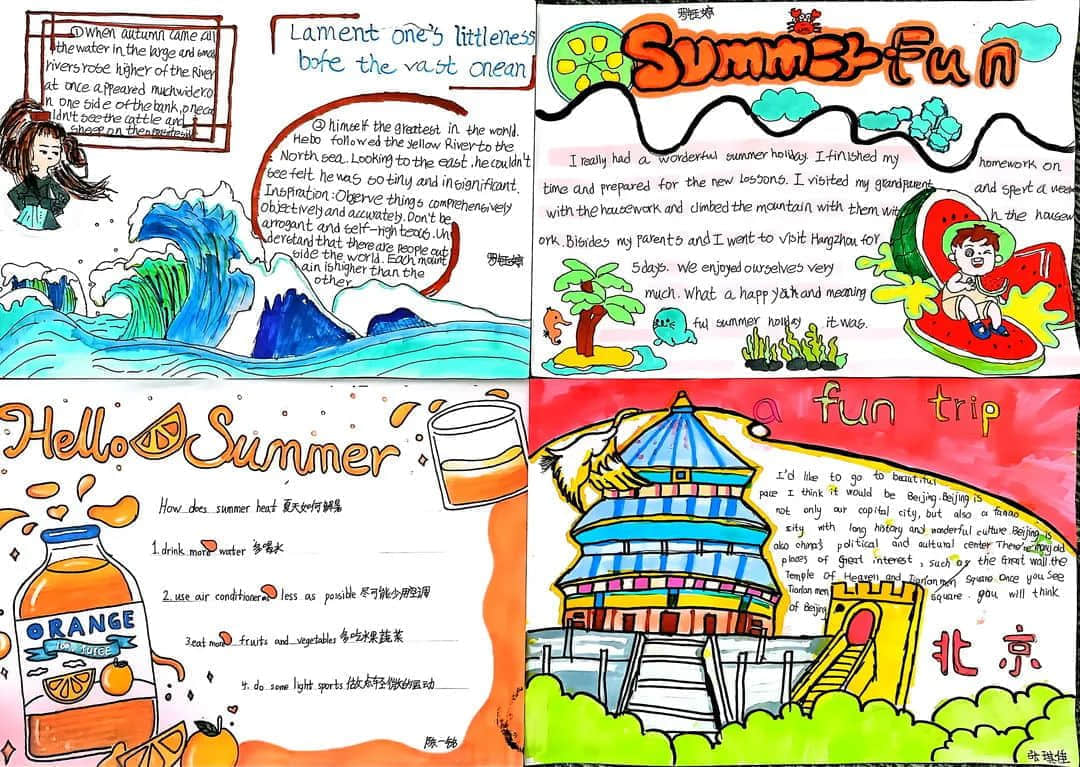 ① When autumn came all
the water in the large and small
rivers rose higher of the River
at once appeared much wider o
n one side of the bank, one co
uldn't see the cattle and
sheep on the
Lament one's littleness
bofe the vast onean
② himself the greatest in the world.
Hebo followed the Yellow River to the
North sea. Looking to the east, he couldn't
see felt he was so tiny and insignificant.
Inspiration: Observe things comprehensively
objectively and accurately. Don't be
arrogant and self-righteous. Un
derstand that there are people out
side the world. Each mount
ain is higher than the
other
罗钰婷
罗钰婷
Summer fun
I really had a wonderful summer holiday. I finished my homework on
time and prepared for the new lossons. I visited my grandparents and spent a week
with the housework and climbed the mountain with them with the housew
ork. Bisides my parents and I went to visit Hangzhou for
5 days. We enjoyed ourselves very
much. What a happy and meaning
ful summer holiday it was.
Hello Summer
How does summer heat 夏天如何解暑
1. drink more water 多喝水
2. use air conditioner less as possible 尽可能少用空调
3. eat more fruits and vegetables 多吃水果蔬菜
4. do some light sports 做点轻微的运动
ORANGE
100% JUICE
陈一
a fun trip
I'd like to go to beautiful
pace I think it would be Beijing. Beijing is
not only our capital city, but also a famao
sity with long history and wonderful culture. Beijing is
also china's political and aultural center There're many old
places of Great interest, such as the Great wall. the
Temple of Heaven and Tiantan men Square. Once you see
Tiantan men square. you will think
of Beijing
北京
张琪佳